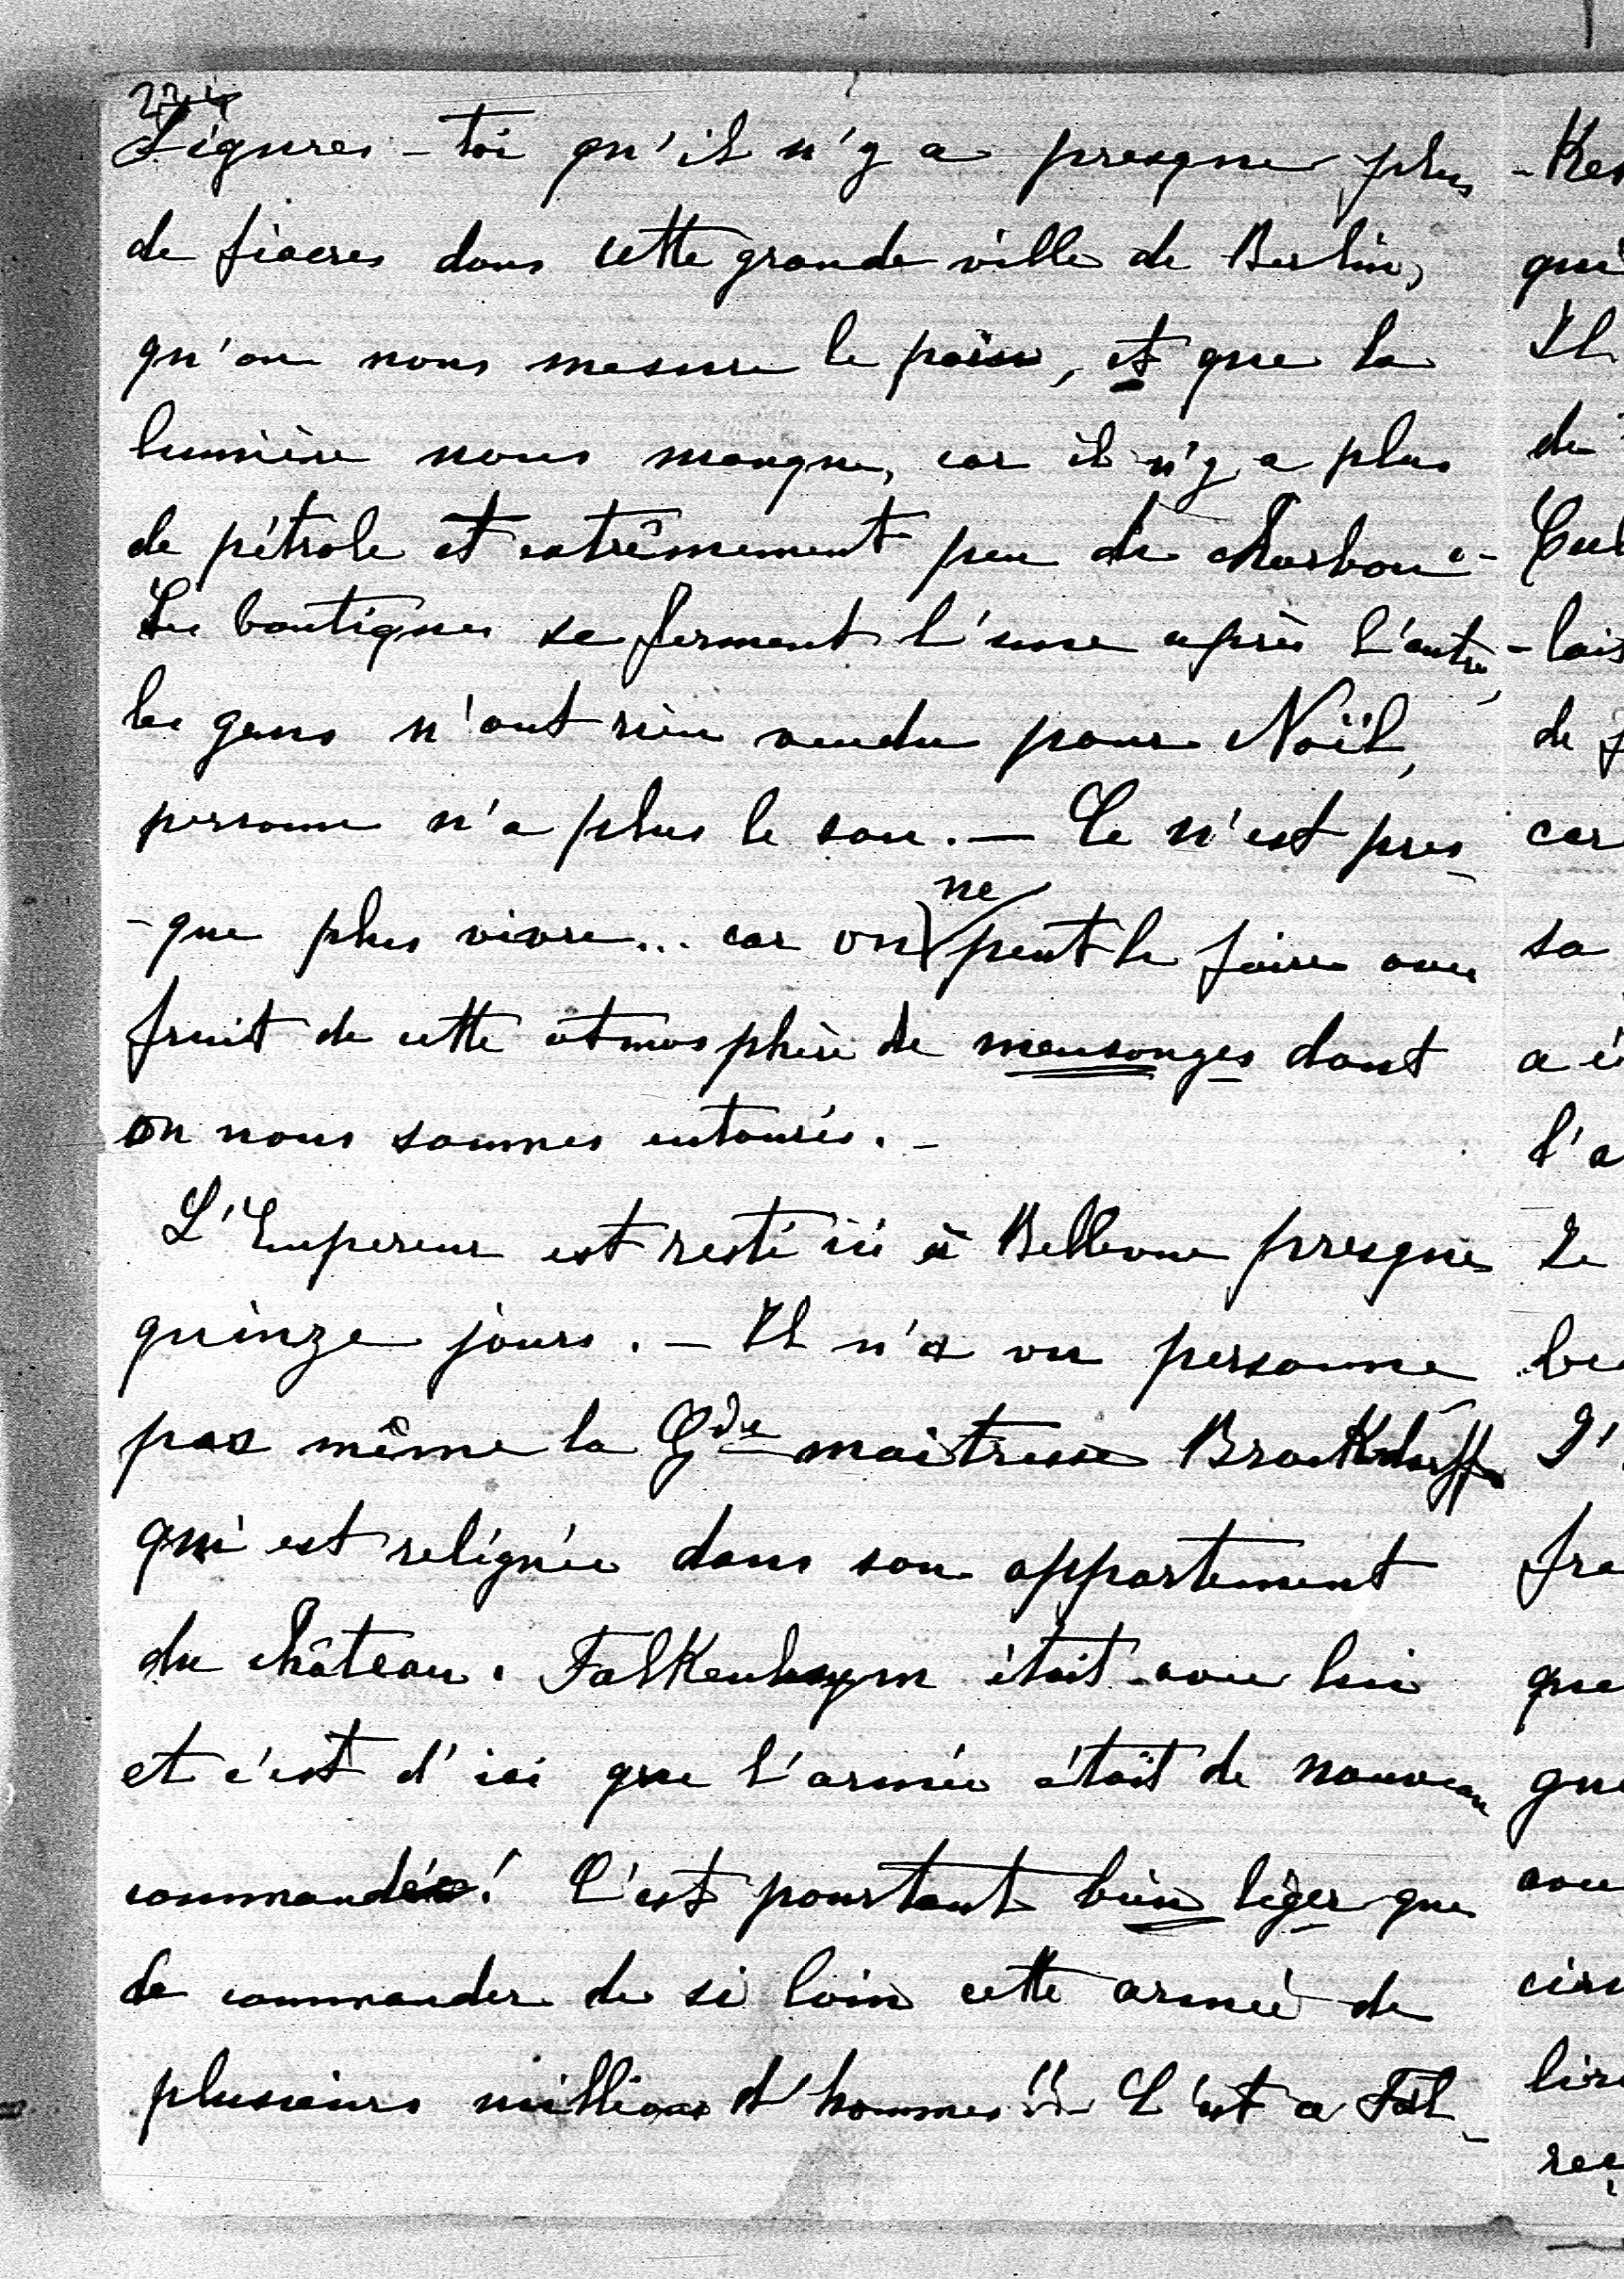 224
Figures-toi qu'il n'y a presque plus
de fiacres dans cette grande ville de Berlin,
qu'on nous mesure le pain, et que la
lumière nous manque, car il n'y a plus
de pétrole et extrêmement peu de charbon.-
Les boutiques se ferment l'une après l'autre,
les gens n'ont rien vendu pour Noël,
personne n'a plus le sou. — Ce n'est pres-
-que plus vivre... car on ne peut le faire avec
fruit de cette atmosphère de mensonges dont
on nous sommes entourés. -
L'Empereur est resté ici à Bellevue presque
quinze jours. - Il n'a vu personne
pas même la Gde maitresse Brockdorff
qui est reléguée dans son appartement
du château. Falkenhayn était avec lui
et c'est d'ici que l'armée était de nouveau
commandée! C'est pourtant bien léger que
de commander de si loin cette armée de
plusieurs millions d'hommes!! C'est a Fal-
-Ken
qui
Il
de
-lais
de
car
sa
a é
l'a
Le
J'
fra
que
gue
avec
lire